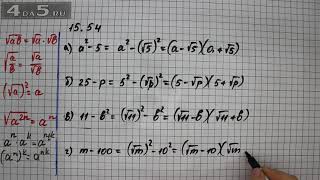 4DA5.RU
15.54
√ab = √a · √b
√a/b = √a/√b
(√a)² = a
√a²ⁿ = aⁿ
aⁿ · aᵏ = aⁿ⁺ᵏ
(aⁿ)ᵏ = aⁿᵏ
а) a² - 5 = a² - (√5)² = (a - √5)(a + √5)
б) 25 - p = 5² - (√p)² = (5 - √p)(5 + √p)
в) 11 - b² = (√11)² - b² = (√11 - b)(√11 + b)
г) m - 100 = (√m)² - 10² = (√m - 10)(√m +